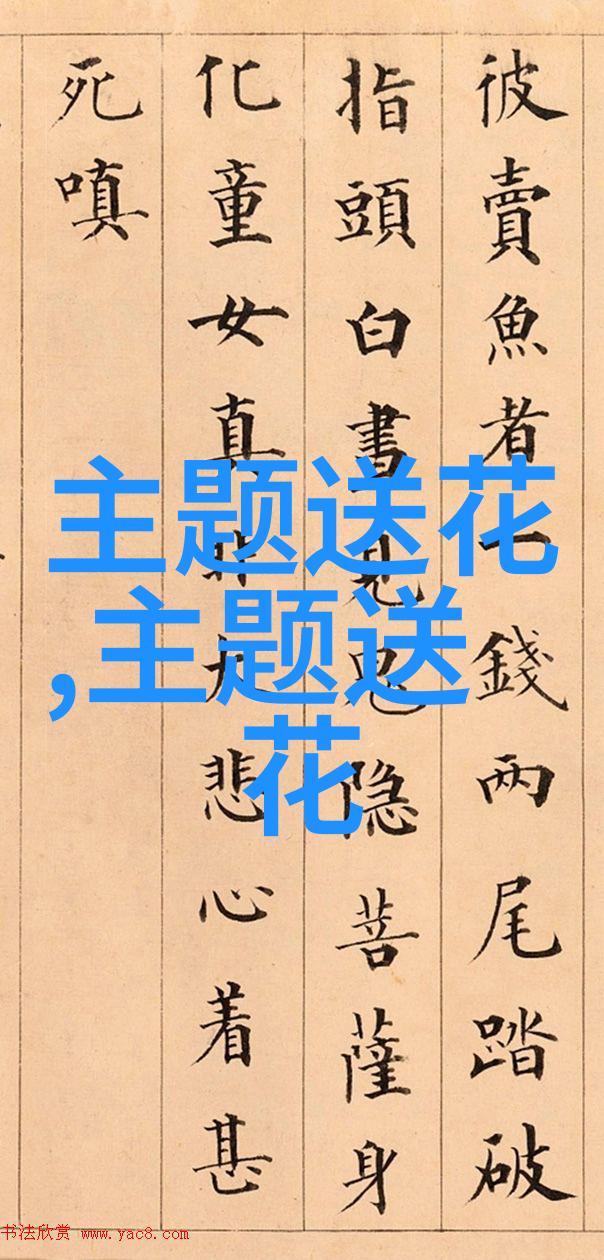 彼賣魚者一錢两尾踏破
指頭白書見鬼隐菩薩身
化童女真非大悲心着甚
死嗔
主题送花
,主题送
花
书法欣赏 www.yac8.com